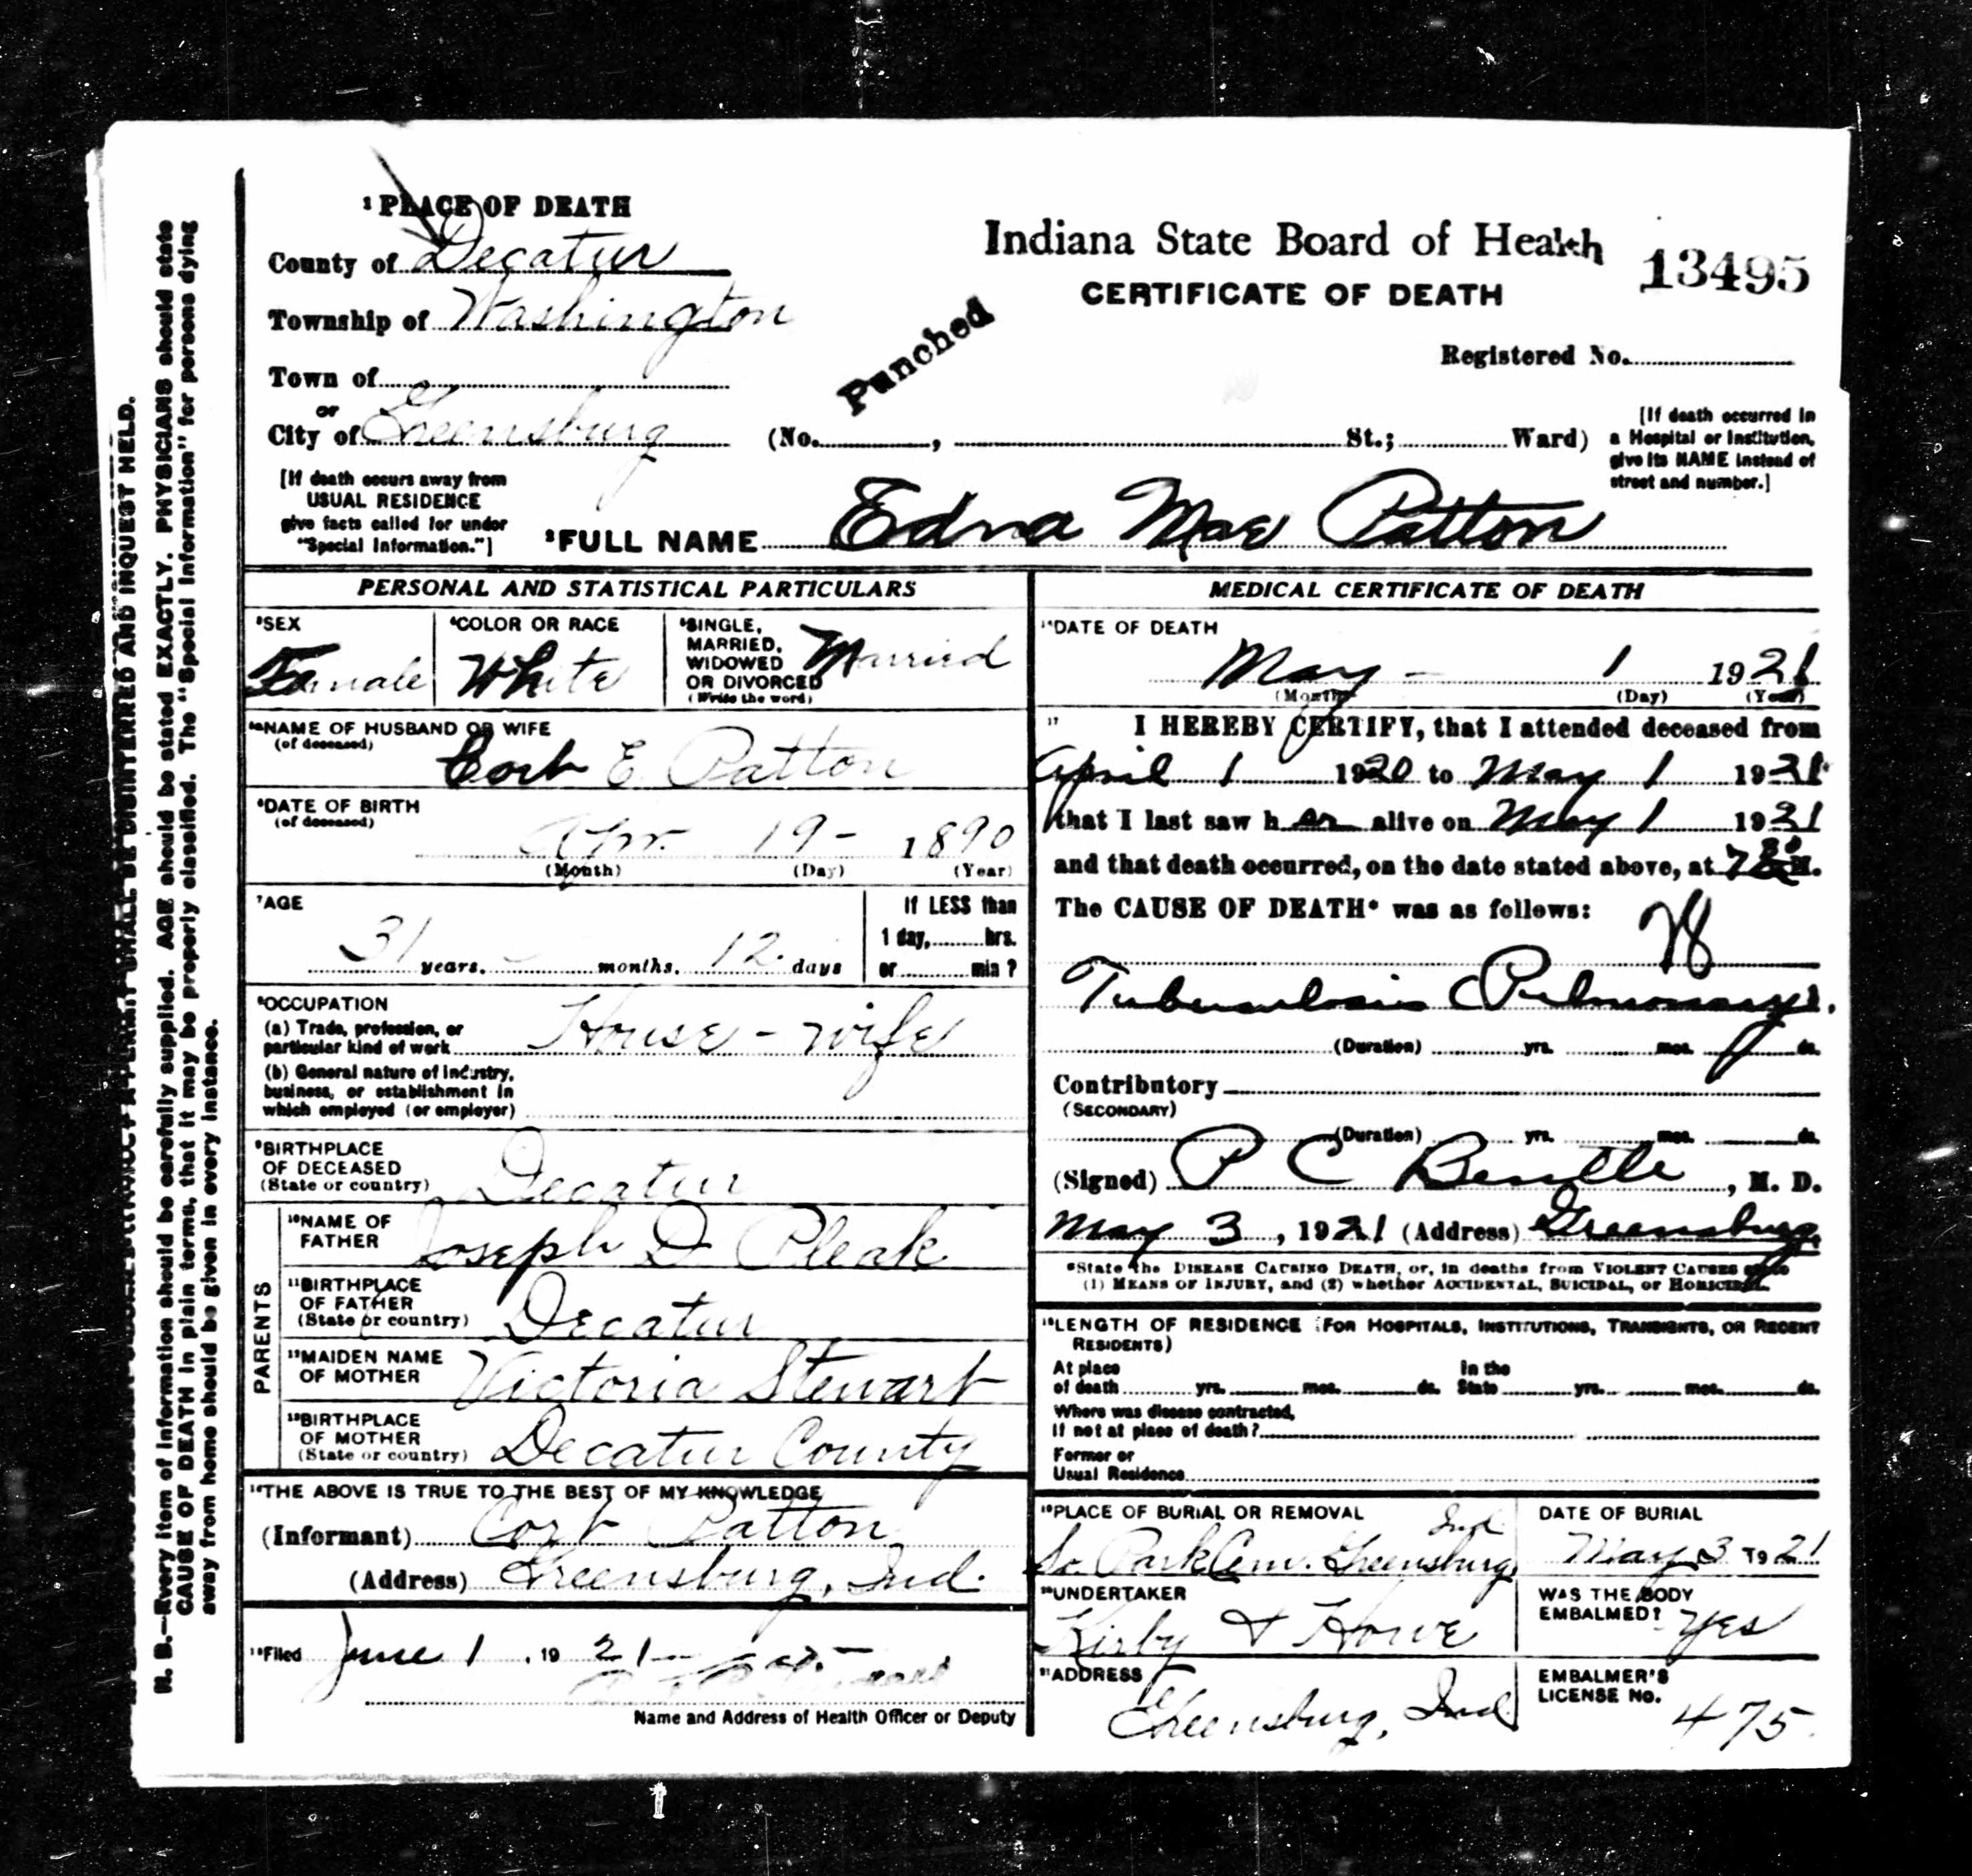 ¹ PLACE OF DEATH
County of Decatur
Township of Washington
Town of
or
City of Greensburg
Indiana State Board of Health
CERTIFICATE OF DEATH
13495
Punched
Registered No.
(No. , St.; Ward)
[If death occurred in
a Hospital or Institution,
give its NAME instead of
street and number.]
[If death occurs away from
USUAL RESIDENCE
give facts called for under
"Special Information."]
²FULL NAME Edna Mae Patton
PERSONAL AND STATISTICAL PARTICULARS
³SEX
Female
⁴COLOR OR RACE
White
⁵SINGLE,
MARRIED,
WIDOWED
OR DIVORCED
(Write the word)
Married
NAME OF HUSBAND OR WIFE
(of deceased)
Cort E Patton
⁶DATE OF BIRTH
(of deceased)
Apr. 19 - 1890
(Month) (Day) (Year)
⁷AGE
31 years. - months. 12 days
If LESS than
1 day, hrs.
or min?
⁸OCCUPATION
(a) Trade, profession, or
particular kind of work House-wife
(b) General nature of industry,
business, or establishment in
which employed (or employer)
⁹BIRTHPLACE
OF DECEASED
(State or country) Decatur
PARENTS
¹⁰NAME OF
FATHER Joseph D Pleak
¹¹BIRTHPLACE
OF FATHER
(State or country) Decatur
¹²MAIDEN NAME
OF MOTHER Victoria Stewart
¹³BIRTHPLACE
OF MOTHER
(State or country) Decatur County
¹⁴THE ABOVE IS TRUE TO THE BEST OF MY KNOWLEDGE
(Informant) Cort Patton
(Address) Greensburg, Ind.
¹⁵Filed June 1, 1921
Name and Address of Health Officer or Deputy
MEDICAL CERTIFICATE OF DEATH
¹⁶DATE OF DEATH
May - 1 1921
(Month) (Day) (Year)
¹⁷ I HEREBY CERTIFY, that I attended deceased from
April 1 1920 to May 1 1921
that I last saw her alive on May 1 1921
and that death occurred, on the date stated above, at 7 30 M.
The CAUSE OF DEATH* was as follows:
Tuberculosis Pulmonary.
(Duration) yrs. mos. ds.
Contributory
(SECONDARY)
(Duration) yrs. mos. ds.
(Signed) P C , M. D.
May 3, 1921 (Address) Greensburg
*State the DISEASE CAUSING DEATH, or, in deaths from VIOLENT CAUSES state
(1) MEANS OF INJURY, and (2) whether ACCIDENTAL, SUICIDAL, or HOMICIDAL.
¹⁸LENGTH OF RESIDENCE (FOR HOSPITALS, INSTITUTIONS, TRANSIENTS, OR RECENT
RESIDENTS)
At place
of death yrs. mos. ds.
In the
State yrs. mos. ds.
Where was disease contracted,
If not at place of death?
Former or
Usual Residence
¹⁹PLACE OF BURIAL OR REMOVAL
So. Park Cem. Greensburg, Ind
DATE OF BURIAL
May 3 1921
²⁰UNDERTAKER
Kirby & Howe
WAS THE BODY
EMBALMED? Yes
²¹ADDRESS
Greensburg, Ind
EMBALMER'S
LICENSE NO. 475
N. B.—Every item of information should be carefully supplied. AGE should be stated EXACTLY. PHYSICIANS should state
CAUSE OF DEATH in plain terms, that it may be properly classified. The "Special Information" for persons dying
away from home should be given in every instance.
SHALL BE DISINTERRED AND INQUEST HELD.